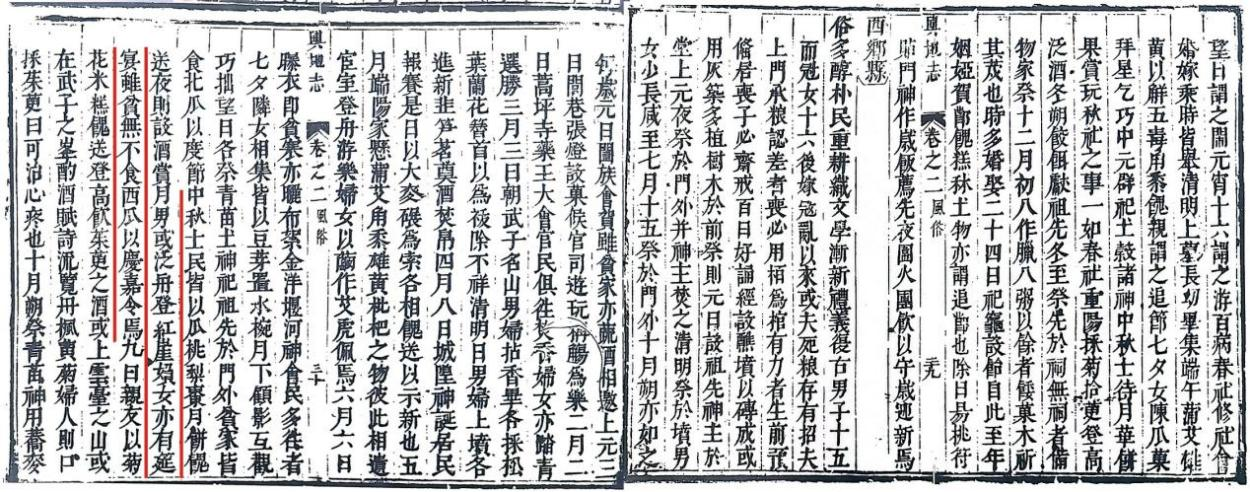 望日謂之鬧元宵十六謂之游百病春社修社會
婚嫁乘時皆舉清明上墓長幼畢集端午蒲艾雄
黃以解五毒用黍餽親謂之追節七夕女陳瓜菓
拜星乞巧中元群祀土穀諸神中秋士待月華餅
果賞玩秋社之事一如春社重陽採菊拾萸登高
泛酒冬朔餃餌獻祖先冬至祭先於祠無祠者備
物家祭十二月初八作臘八粥以餘者餧菓木祈
其茂也時多婚娶二十四日祀竈設節自此至年
姻婭賀節餽糕秫土物亦謂追節也除日易桃符
輿地志 卷之二 風俗 二九
貼門神作歲飯薦先夜圍火團飲以守歲迎新焉
西鄉縣
俗多醇朴民重耕織文學漸新禮義復古男子十五
而冠女十六後嫁寇亂以來或夫死粮存有招夫
上門承粮認差者喪必用栢為棺有力者生前預
俻居喪子必齋戒百日好誦經設醮墳以磚成或
用灰築多植樹木於前祭則元日設祖先神主於
堂上元夜祭於門外并神主焚之清明祭於墳男
女少長咸至七月十五祭於門外十月朔亦如之
每歲元日闔族會賀雖貧家亦蔬酒相邀上元三
日閭巷張燈設菓候官司遊玩稱觴為樂二月二
日蒿坪寺藥王大會官民俱往焚香婦女亦踏青
選勝三月三日朝武子名山男婦拈香畢各採松
葉蘭花簪首以為祓除不祥清明日男婦上墳各
進新韭笋茗奠酒焚帛四月八日城隍神誕居民
報賽是日以大麥碾為索各相餽送以示新也五
月端陽家懸蒲艾角黍雄黃枇杷之物彼此相遺
宦室登舟游樂婦女以繭作艾虎佩焉六月六日
輿地志 卷之二 風俗 三十
曝衣即貧寒亦曬布絮金洋堰河神會民多往者
七夕隣女相集皆以豆芽置水椀月下顧影互觀
巧拙望日各祭青苗土神祀祖先於門外貧家皆
食北瓜以度節中秋士民皆以瓜桃梨棗月餅餽
送夜則設酒賞月男或泛舟登紅崖婦女亦有延
宴雖貧無不食西瓜以慶嘉令焉九日親友以菊
花米糕餽送登高飲茱萸之酒或上雲臺之山或
在武子之峯酌酒賦詩流覽丹楓黃菊婦人則口
採茱萸曰可治心疼也十月朔祭青苗神用蕎麥